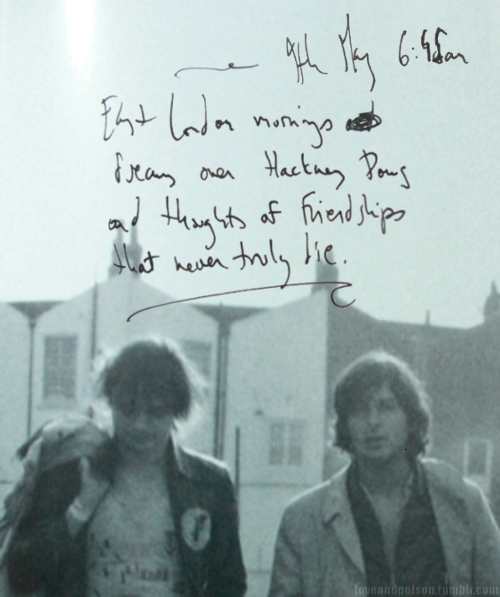 9th May 6:45am
East London mornings
Dreams over Hackney Downs
and thoughts of Friendships
that never truly die.
loveandpoison.tumblr.com